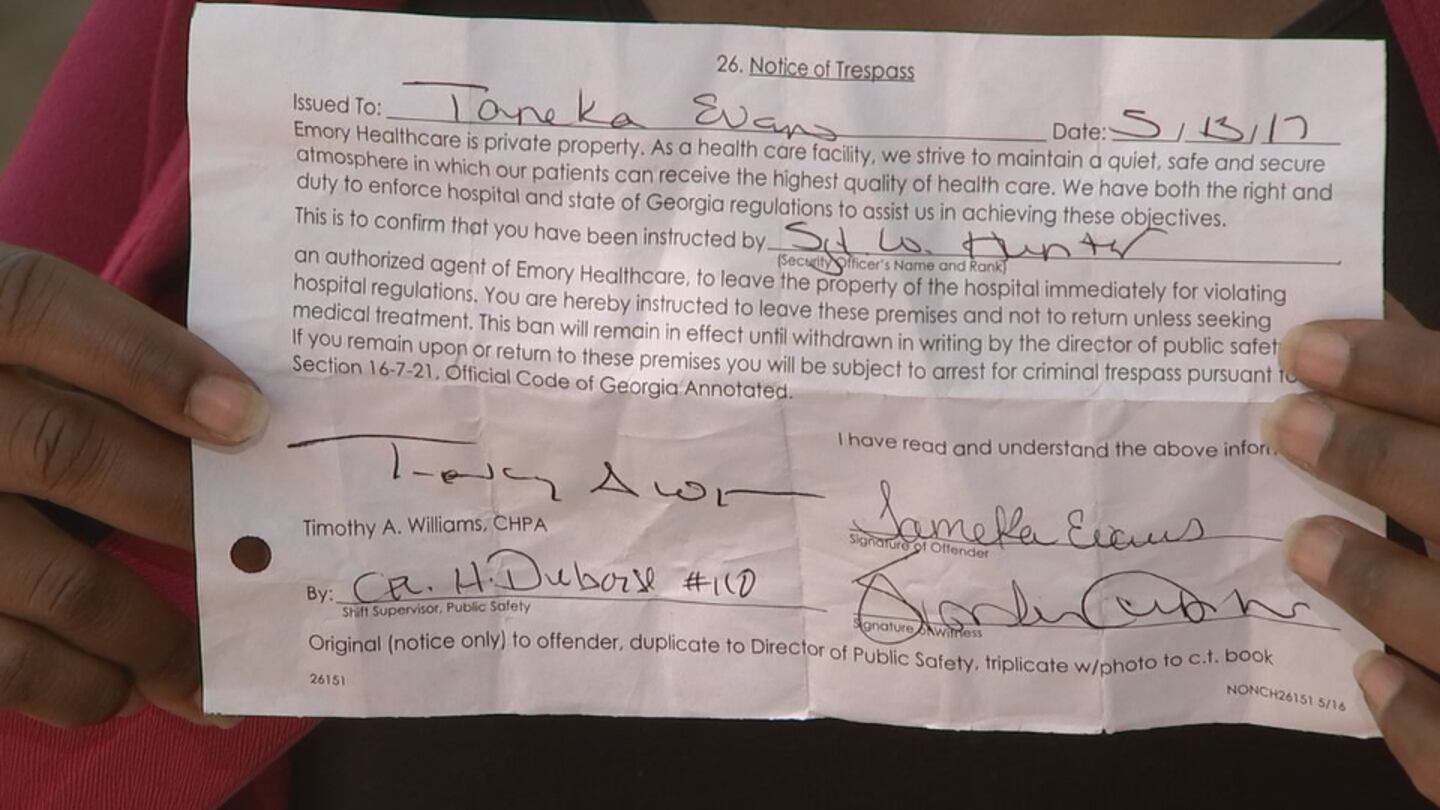 26. Notice of Trespass
Issued To: Taneka Evans Date: 5/13/17
Emory Healthcare is private property. As a health care facility, we strive to maintain a quiet, safe and secure
atmosphere in which our patients can receive the highest quality of health care. We have both the right and
duty to enforce hospital and state of Georgia regulations to assist us in achieving these objectives.
This is to confirm that you have been instructed by Sgt W. Hunter
(Security Officer's Name and Rank)
an authorized agent of Emory Healthcare, to leave the property of the hospital immediately for violating
hospital regulations. You are hereby instructed to leave these premises and not to return unless seeking
medical treatment. This ban will remain in effect until withdrawn in writing by the director of public safet
If you remain upon or return to these premises you will be subject to arrest for criminal trespass pursuant to
Section 16-7-21, Official Code of Georgia Annotated.
I have read and understand the above infor
Timothy A. Williams, CHPA
Tameka Evans
Signature of Offender
By: CR. H. Duboise #110
Shift Supervisor, Public Safety
Signature of Witness
Original (notice only) to offender, duplicate to Director of Public Safety, triplicate w/photo to c.t. book
26151
NONCH26151 5/16